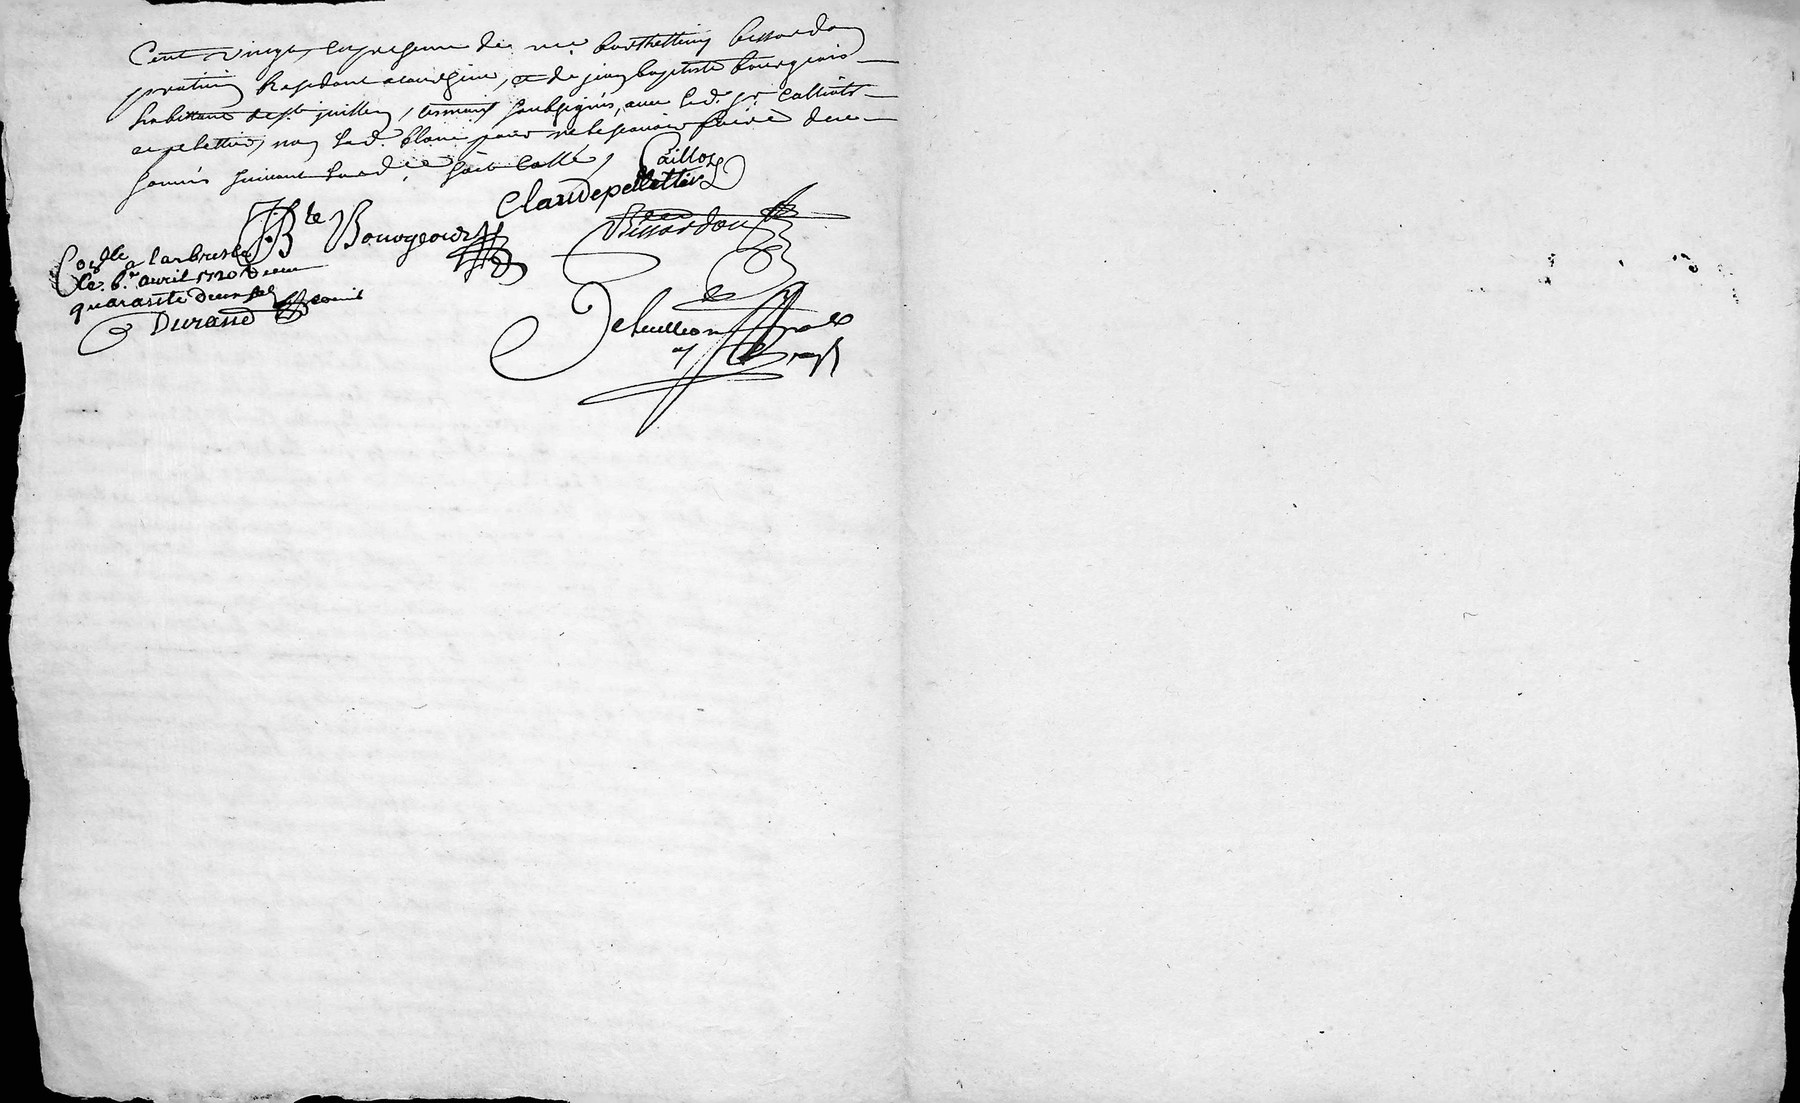 Cent vingt, en presence de me barthellemy bissardon
praticien Residant a courzieu, et de jean baptiste bourgeois
habitant de st jullien, temoins soubsignés, avec led. sr. Calliots
et peletier, non lad. blanc pour ne le scavoir faire de ce
sommés suivant lord.ce Soit Collé,
Caillot
Claude pelletier
JBte Bourgeois
Bissardon
Con.lle a larbresle
le 6.e avril 1720 Receu
quarante deux sols
Durand commis